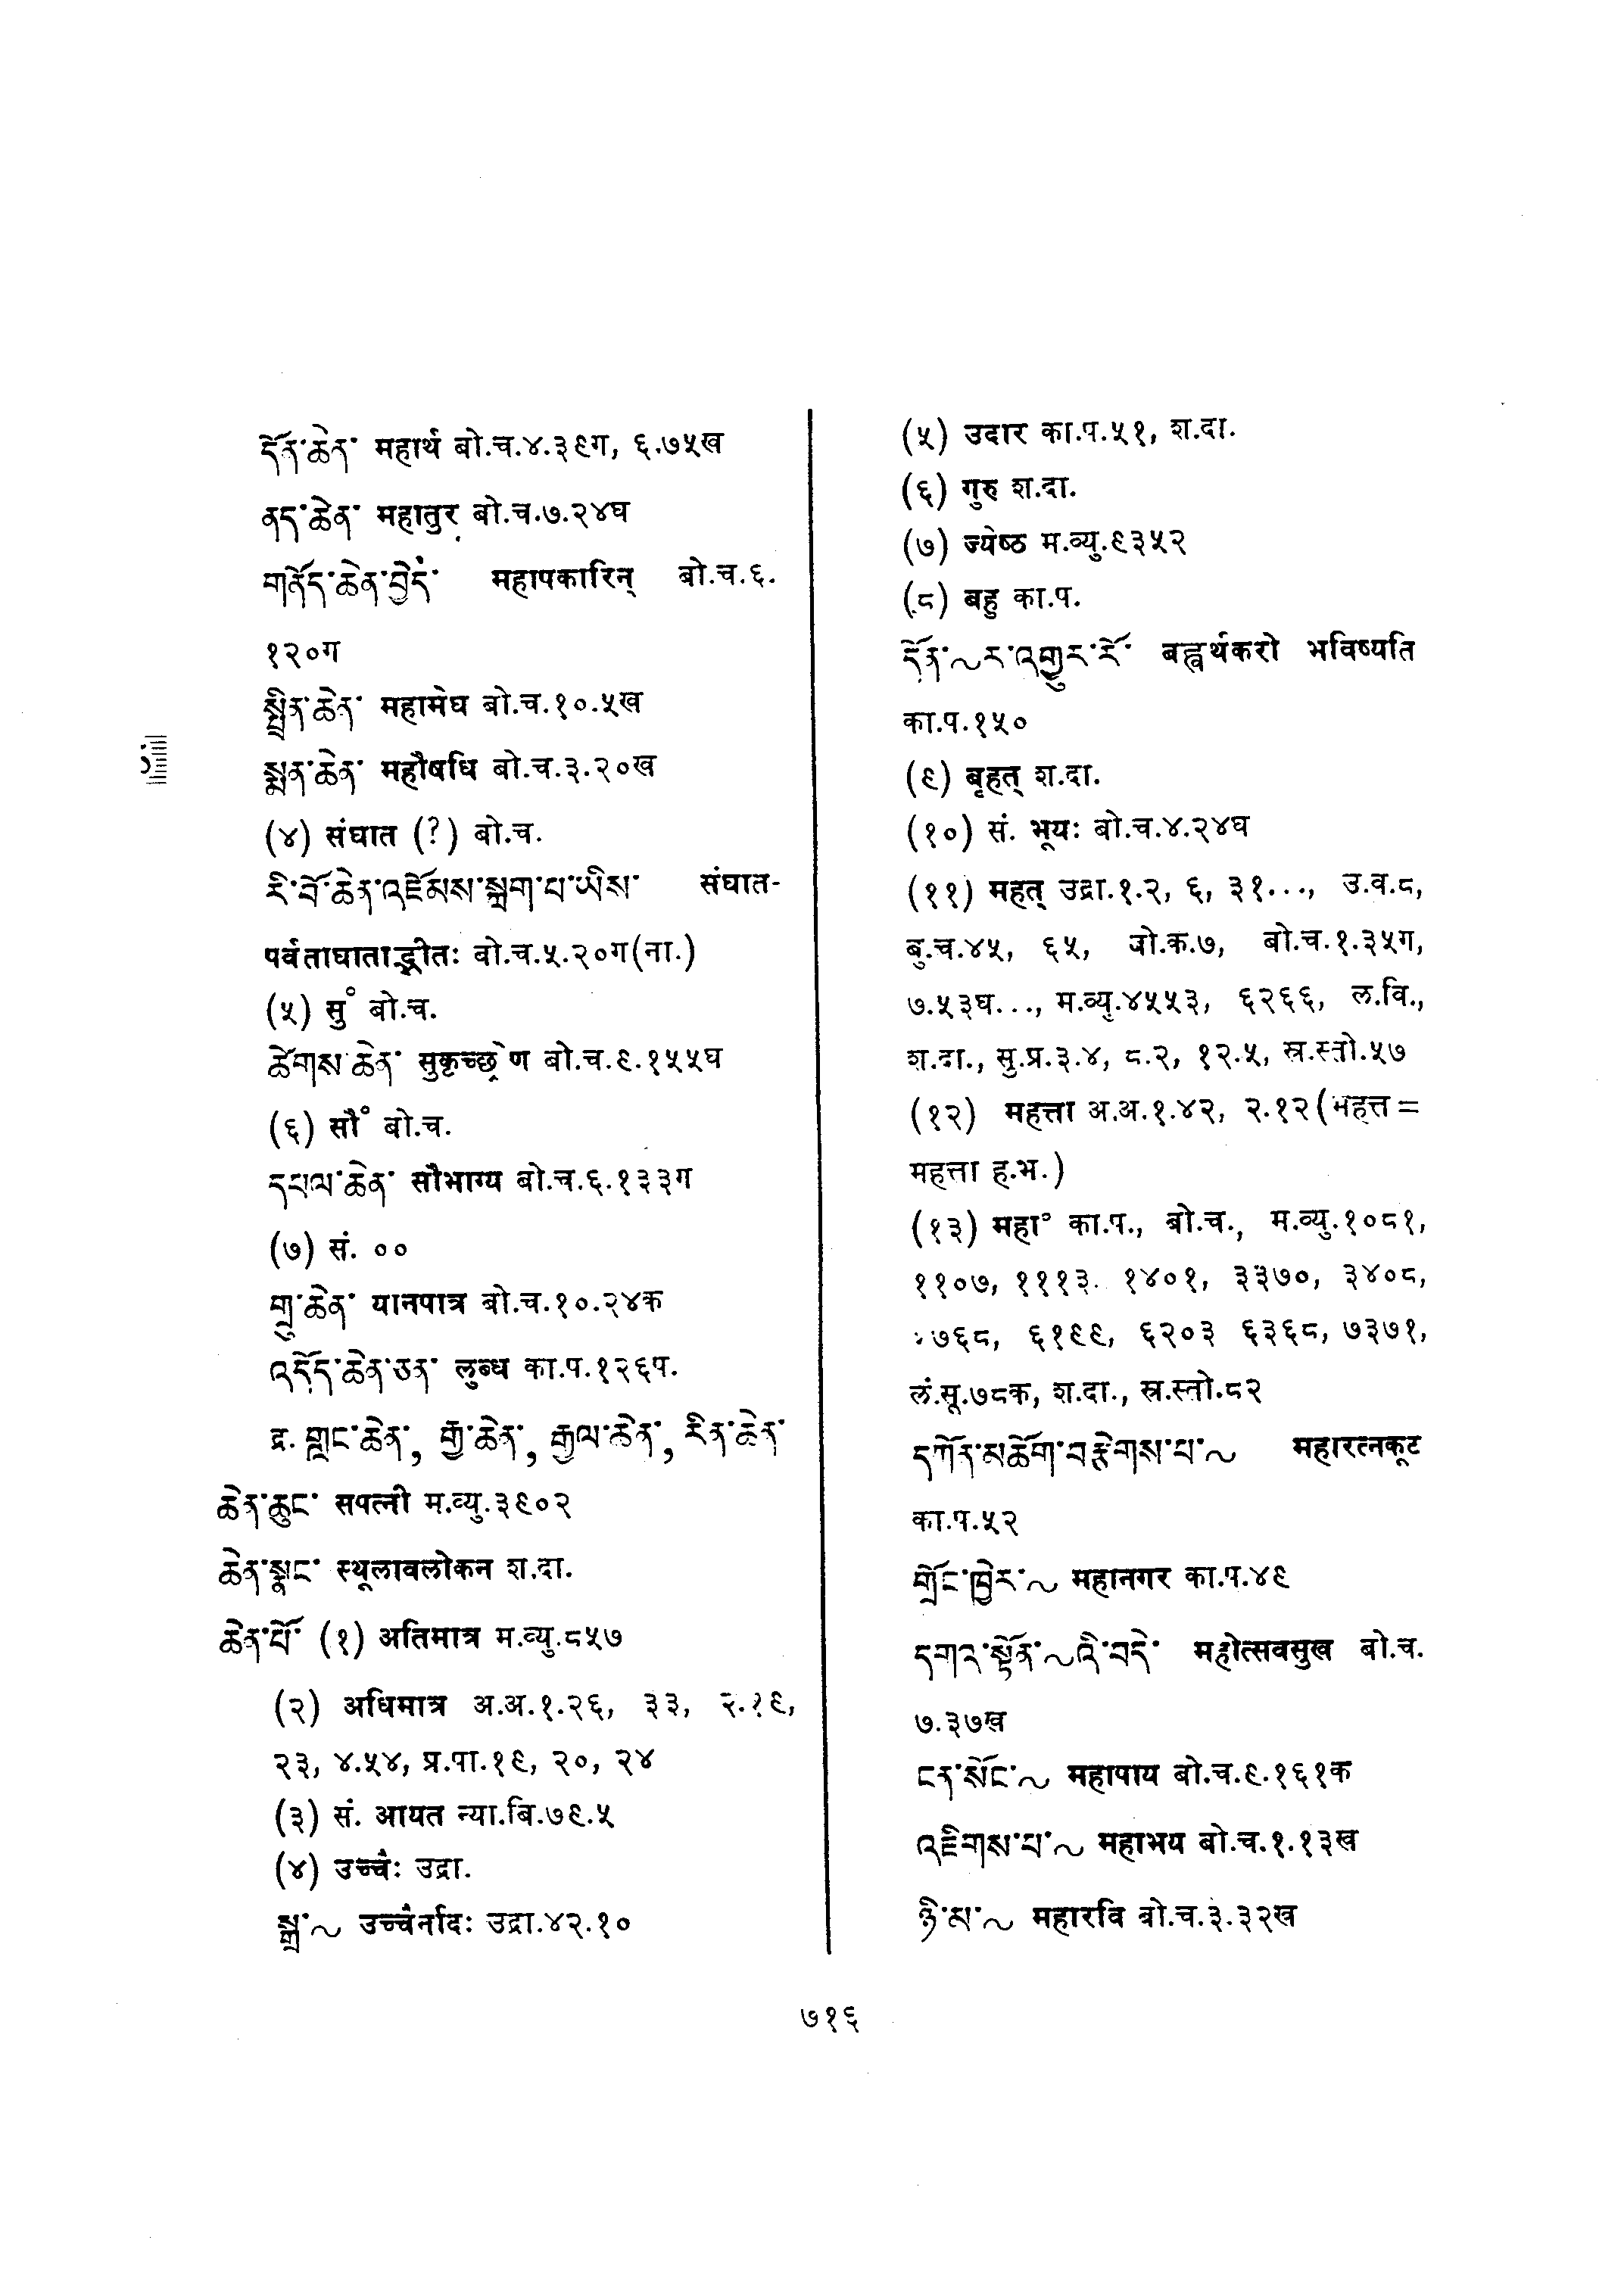 དོན་ཆེན་ महार्थ बो.च.४.३९ग, ६.७५ख
ནད་ཆེན་ महातुर बो.च.७.२४घ
གནོད་ཆེན་བྱེད་ महापकारिन् बो.च.६.
१२०ग
སྤྲིན་ཆེན་ महामेघ बो.च.१०.५ख
སྨན་ཆེན་ महौषधि बो.च.३.२०ख
(४) संघात (?) बो.च.
རི་བོ་ཆེན་འཇོམས་སྐྲག་པ་ཡིས་ संघात-
पर्वताघाताद्भीतः बो.च.५.२०ग(ना.)
(५) सु° बो.च.
ཚེགས་ཆེན་ सुकृच्छ्रेण बो.च.९.१५५घ
(६) सौ° बो.च.
དཔལ་ཆེན་ सौभाग्य बो.च.६.१३३ग
(७) सं. ००
གྲུ་ཆེན་ यानपात्र बो.च.१०.२४क
འདོད་ཆེན་ཅན་ लुब्ध का.प.१२६प.
द्र. གླང་ཆེན་, རྒྱ་ཆེན་, རྒྱལ་ཆེན་, རིན་ཆེན་
ཆེན་ཆུང་ सपत्नी म.व्यु.३९०२
ཆེན་སྣང་ स्थूलावलोकन श.दा.
ཆེན་པོ་ (१) अतिमात्र म.व्यु.८५७
(२) अधिमात्र अ.अ.१.२६, ३३, २.१९,
२३, ४.५४, प्र.पा.१९, २०, २४
(३) सं. आयत न्या.बि.७९.५
(४) उच्चैः उद्रा.
སྒྲ་~ उच्चैर्नादः उद्रा.४२.१०
(५) उदार का.प.५१, श.दा.
(६) गुरु श.दा.
(७) ज्येष्ठ म.व्यु.९३५२
(८) बहु का.प.
དོན་~ར་འགྱུར་རོ་ बह्वर्थकरो भविष्यति
का.प.१५०
(९) बृहत् श.दा.
(१०) सं. भूयः बो.च.४.२४घ
(११) महत् उद्रा.१.२, ६, ३१..., उ.व.८,
बु.च.४५, ६५, जो.क.७, बो.च.१.३५ग,
७.५३घ..., म.व्यु.४५५३, ६२६६, ल.वि.,
श.दा., सु.प्र.३.४, ८.२, १२.५, स्र.स्तो.५७
(१२) महत्ता अ.अ.१.४२, २.१२(महत्त=
महत्ता ह.भ.)
(१३) महा° का.प., बो.च., म.व्यु.१०८१,
११०७, १११३. १४०१, ३३७०, ३४०८,
७६८, ६१९९, ६२०३ ६३६८, ७३७१,
लं.सू.७८क, श.दा., स्र.स्तो.८२
དཀོན་མཆོག་བརྩེགས་པ་~ महारत्नकूट
का.प.५२
གྲོང་ཁྱེར་~ महानगर का.प.४९
དགའ་སྟོན་~འི་བདེ་ महोत्सवसुख बो.च.
७.३७ख
ངན་སོང་~ महापाय बो.च.९.१६१क
འཇིགས་པ་~ महाभय बो.च.१.१३ख
ཉི་མ་~ महारवि बो.च.३.३२ख
७१६